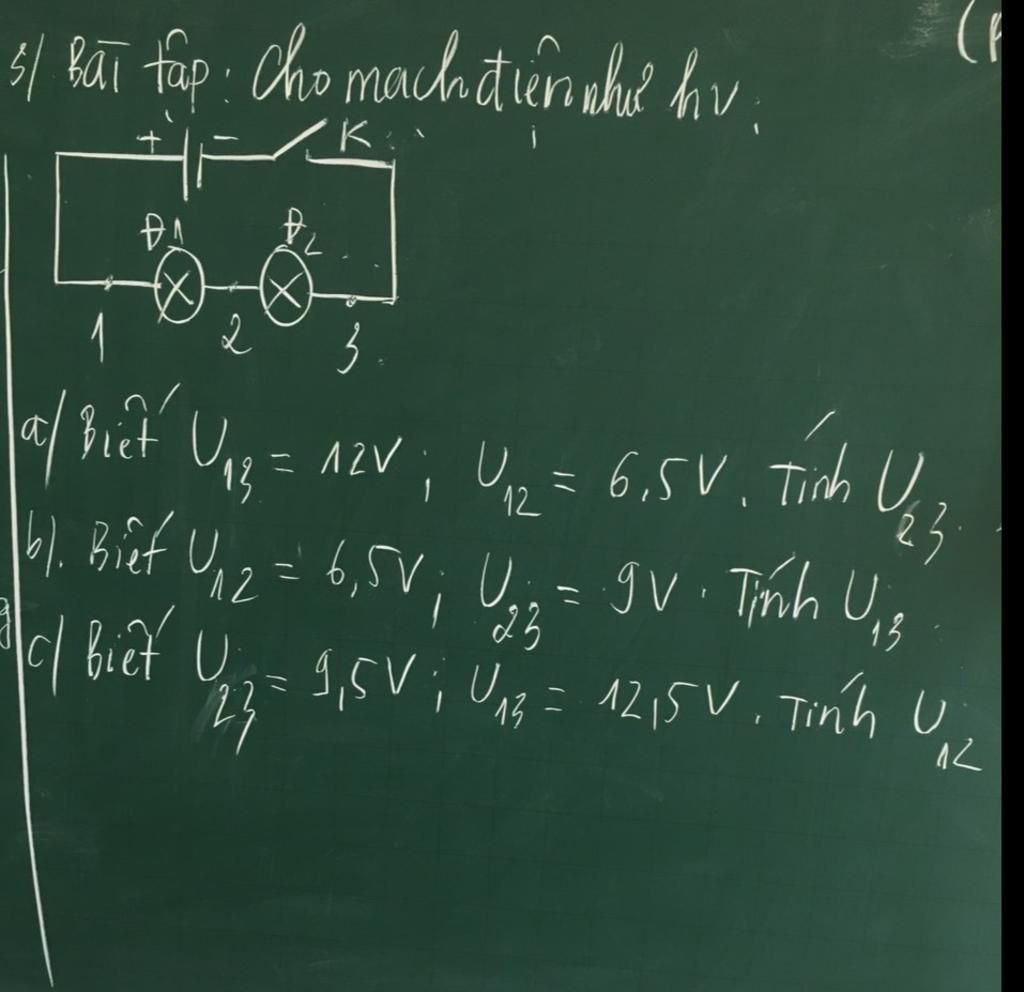 3/ Bài tập: Cho mạch điện như hv.
+ - K
Đ1 Đ2
1 2 3
a/ Biết U13 = 12V ; U12 = 6,5V. Tính U23.
b). Biết U12 = 6,5V; U23 = 9V. Tính U13.
c/ Biết U23 = 9,5V ; U13 = 12,5V. Tính U12